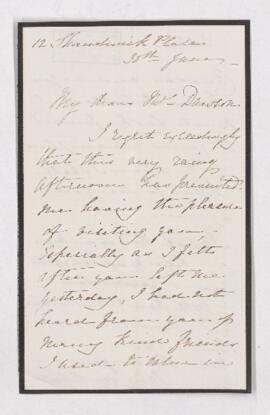 12, Shandwick Place
30th June
My dear Mrs. Dawson
I regret exceedingly
that this very rainy
afternoon has prevented
me having the pleasure
of visiting you,
especially as I felt
after you left me
yesterday, I had not
heard from you of
many kind friends
I used to when in